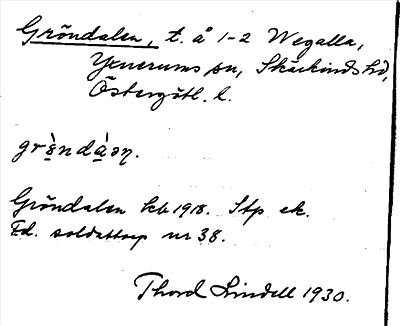 Gröndalen, t. å 1-2 Wegalla,
Yxnerums sn, Skärkinds hd,
Östergötl. l.
grö̀ndàən.
Gröndalen kb 1918. Stp ek.
F.d. soldattorp nr 38.
Thord Lindell 1930.